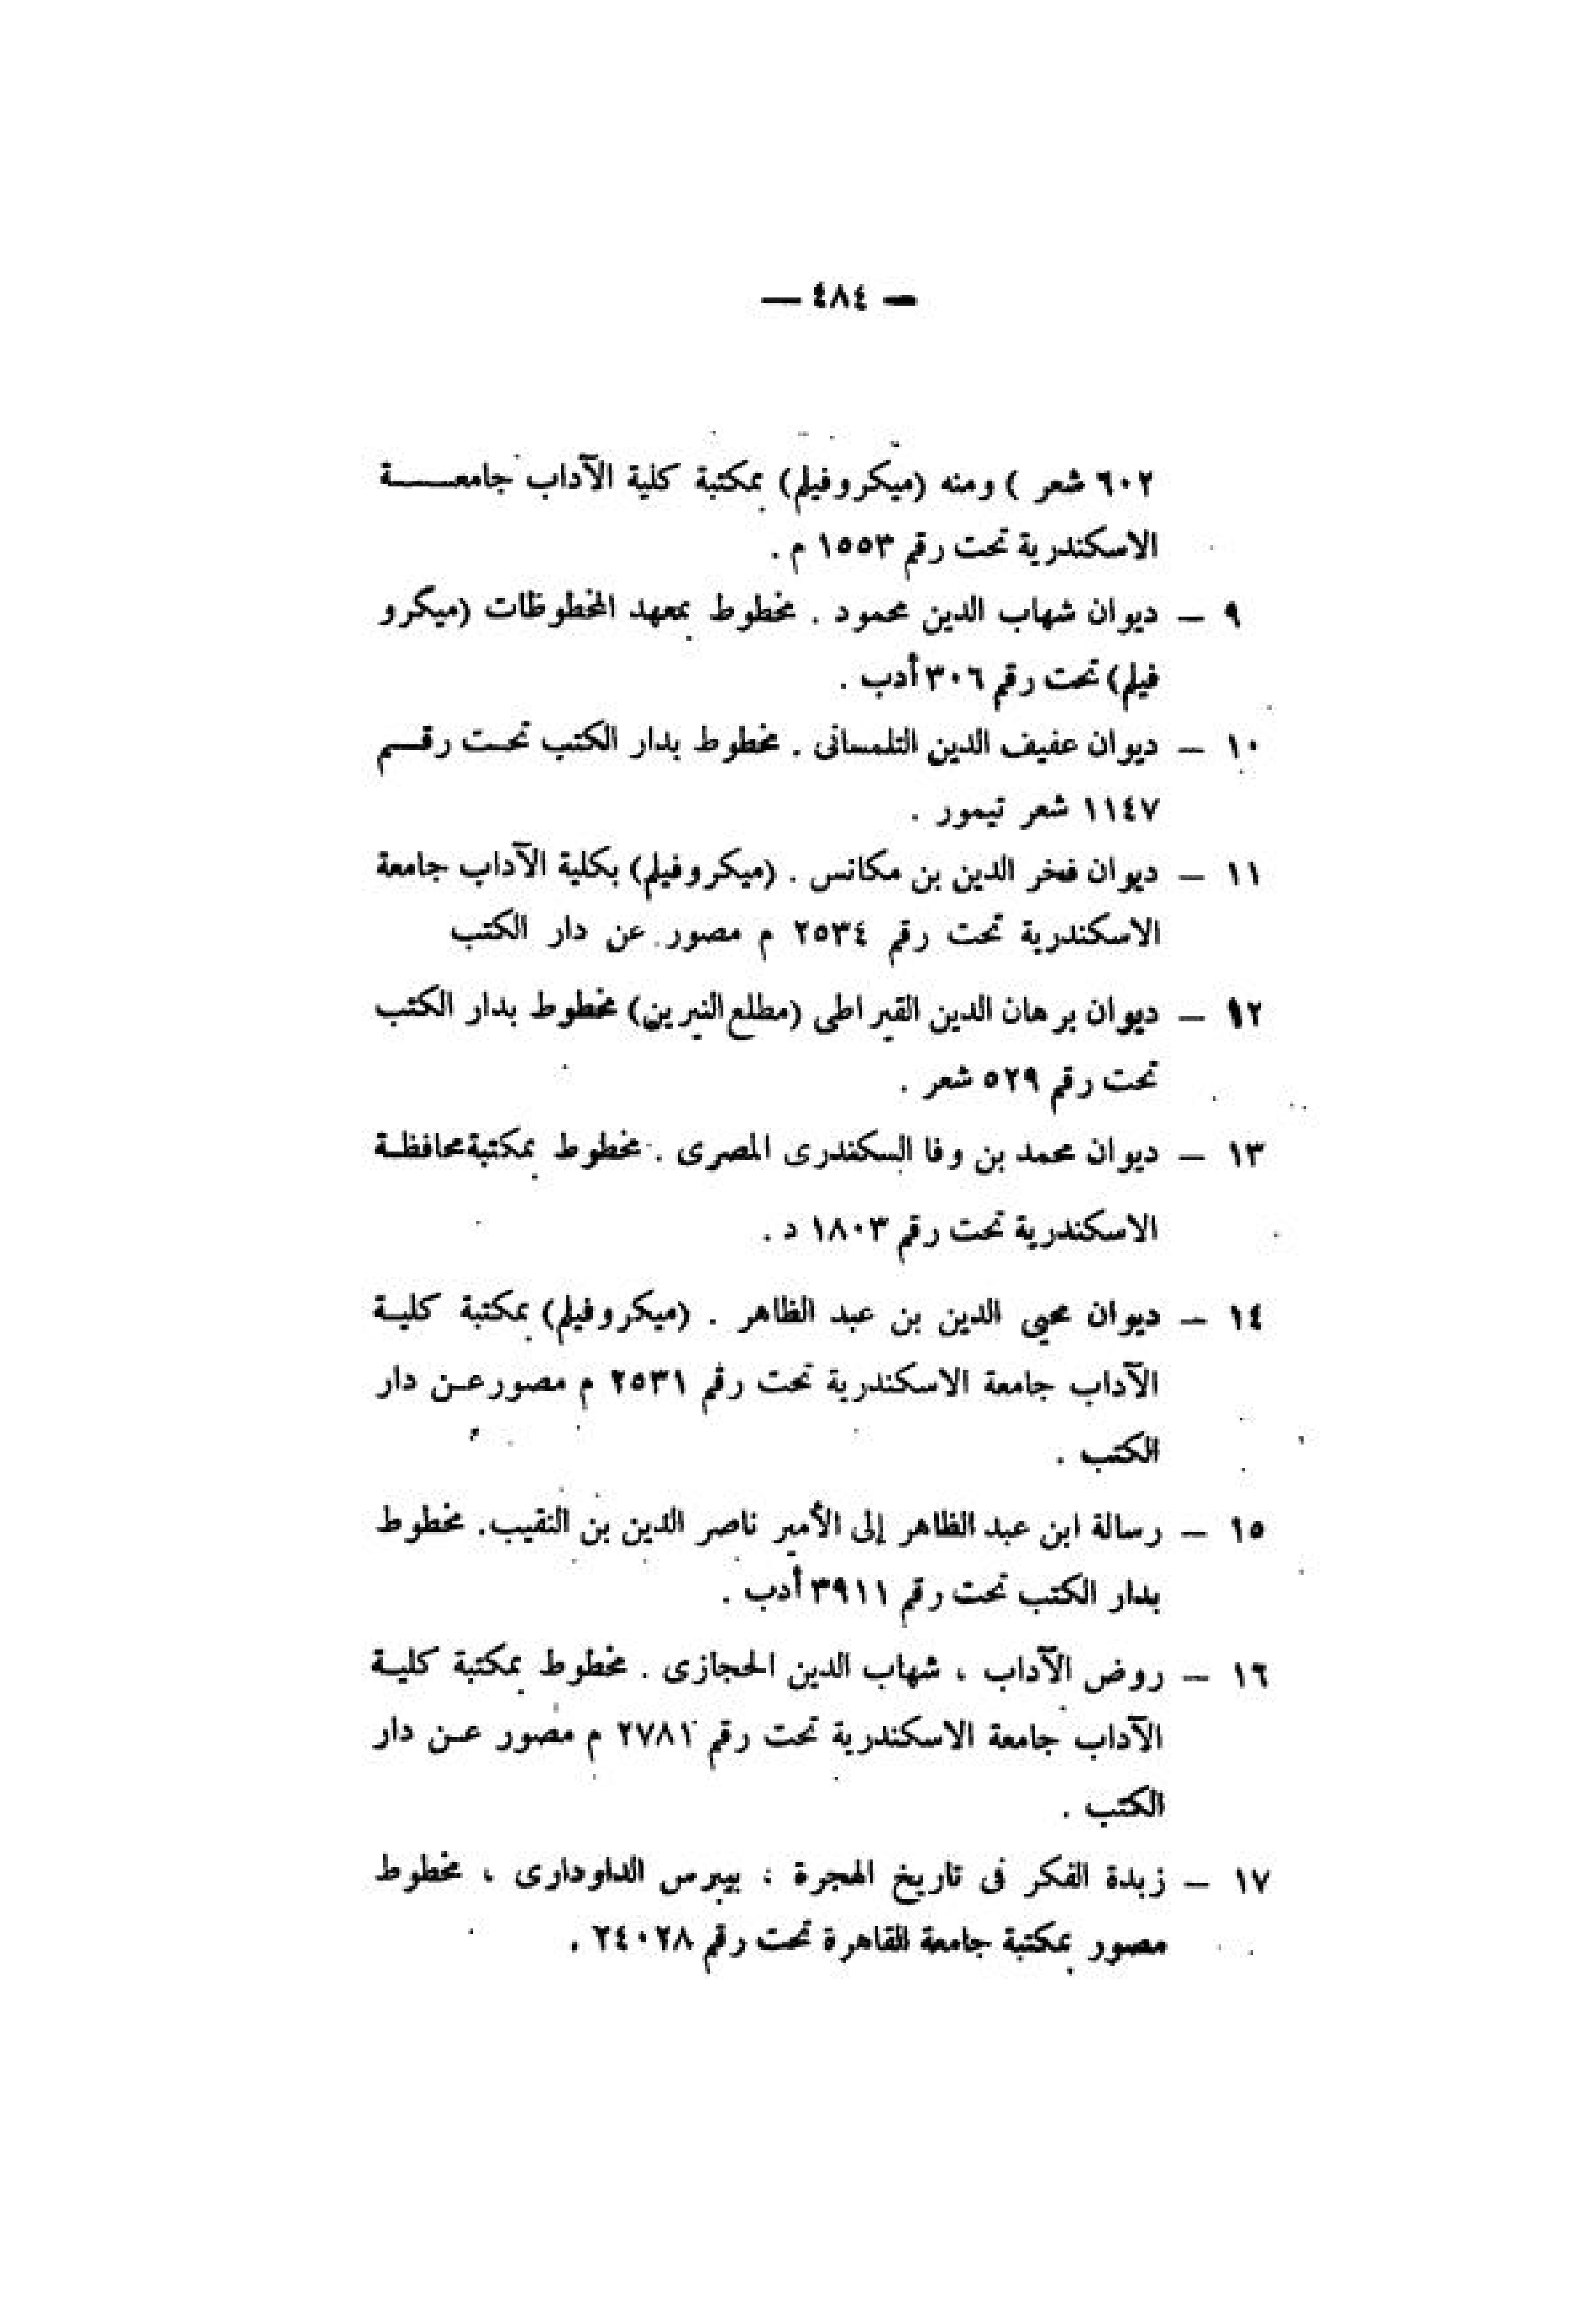 — ٤٨٤ —
٦٠٢ شعر ) ومنه (ميكروفيلم) بمكتبة كلية الآداب جامعة
الاسكندرية تحت رقم ١٥٥٣ م .
٩ — ديوان شهاب الدين محمود . مخطوط بمعهد المخطوظات (ميكرو
فيلم) تحت رقم ٣٠٦ أدب .
١٠ — ديوان عفيف الدين التلمسانى . مخطوط بدار الكتب تحت رقم
١١٤٧ شعر تيمور .
١١ — ديوان فخر الدين بن مكانس . (ميكروفيلم) بكلية الآداب جامعة
الاسكندرية تحت رقم ٢٥٣٤ م مصور عن دار الكتب
١٢ — ديوان برهان الدين القيراطى (مطلع النيرين) مخطوط بدار الكتب
تحت رقم ٥٢٩ شعر .
١٣ — ديوان محمد بن وفا السكندرى المصرى . مخطوط بمكتبة محافظة
الاسكندرية تحت رقم ١٨٠٣ د .
١٤ — ديوان محيى الدين بن عبد الظاهر . (ميكروفيلم) بمكتبة كلية
الآداب جامعة الاسكندرية تحت رقم ٢٥٣١ م مصور عن دار
الكتب .
١٥ — رسالة ابن عبد الظاهر إلى الأمير ناصر الدين بن النقيب. مخطوط
بدار الكتب تحت رقم ٣٩١١ أدب .
١٦ — روض الآداب ، شهاب الدين الحجازى . مخطوط بمكتبة كلية
الآداب جامعة الاسكندرية تحت رقم ٢٧٨١ م مصور عن دار
الكتب .
١٧ — زبدة الفكر فى تاريخ الهجرة : بيبرس الداودارى ، مخطوط
مصور بمكتبة جامعة القاهرة تحت رقم ٢٤٠٢٨ .